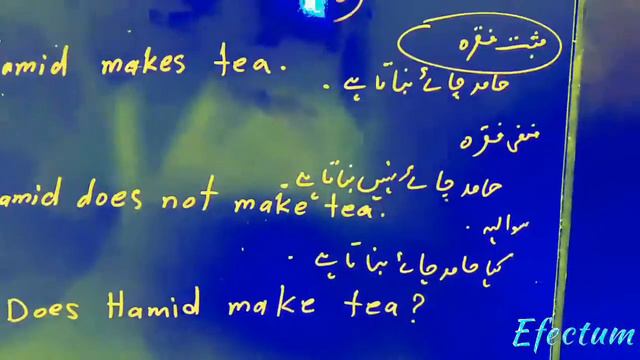 مثبت فقرہ
amid makes tea.
حامد چائے بناتا ہے۔
منفی فقرہ
حامد چائے نہیں بناتا ہے۔
amid does not make tea.
سوالیہ۔
کیا حامد چائے بناتا ہے۔
Does Hamid make tea?
Efectum